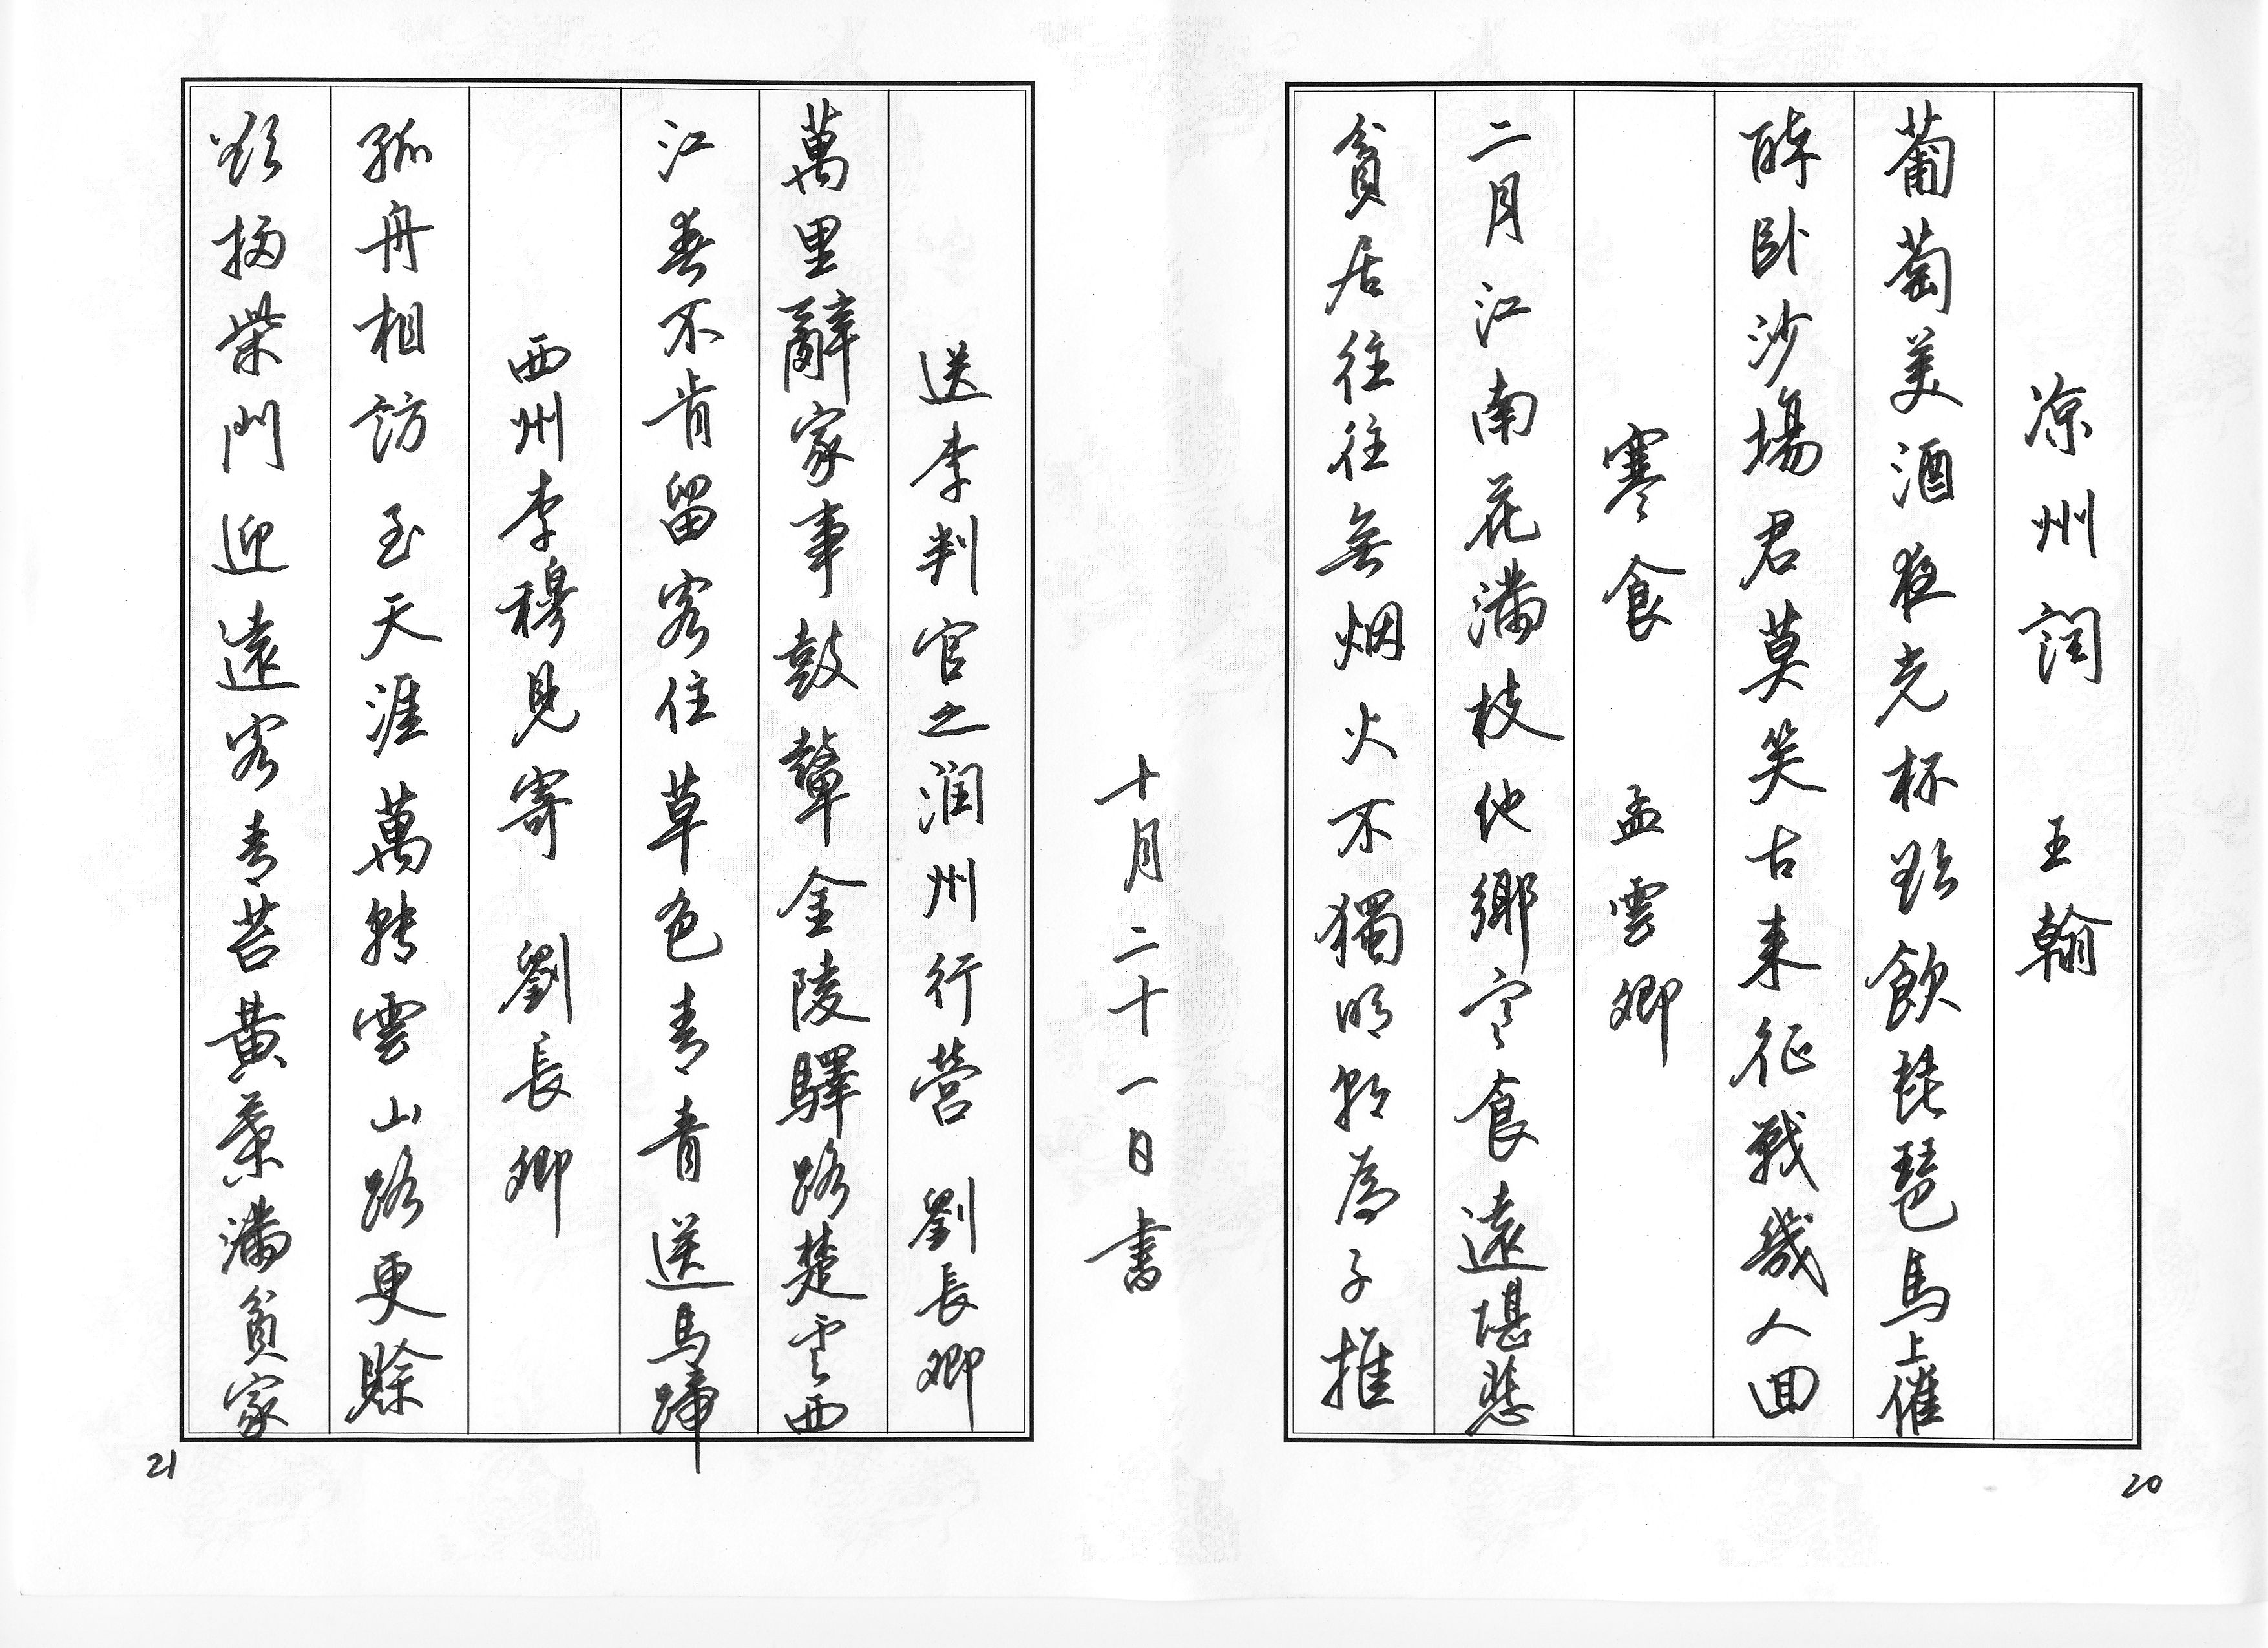 凉州詞 王翰
葡萄美酒夜光杯欲飲琵琶馬上催
醉卧沙場君莫笑古来征戰幾人回
寒食 孟雲卿
二月江南花滿枝他鄉寒食遠堪悲
貧居往往無烟火不獨明朝為子推
20
十月二十一日書
送李判官之润州行营 劉長卿
萬里辭家事鼓鼙金陵驛路楚雲西
江春不肯留客住草色青青送馬蹄
西州李穆見寄 劉長卿
孤舟相訪至天涯萬轉雲山路更賒
欲掃柴門迎遠客青苔黄葉滿貧家
21